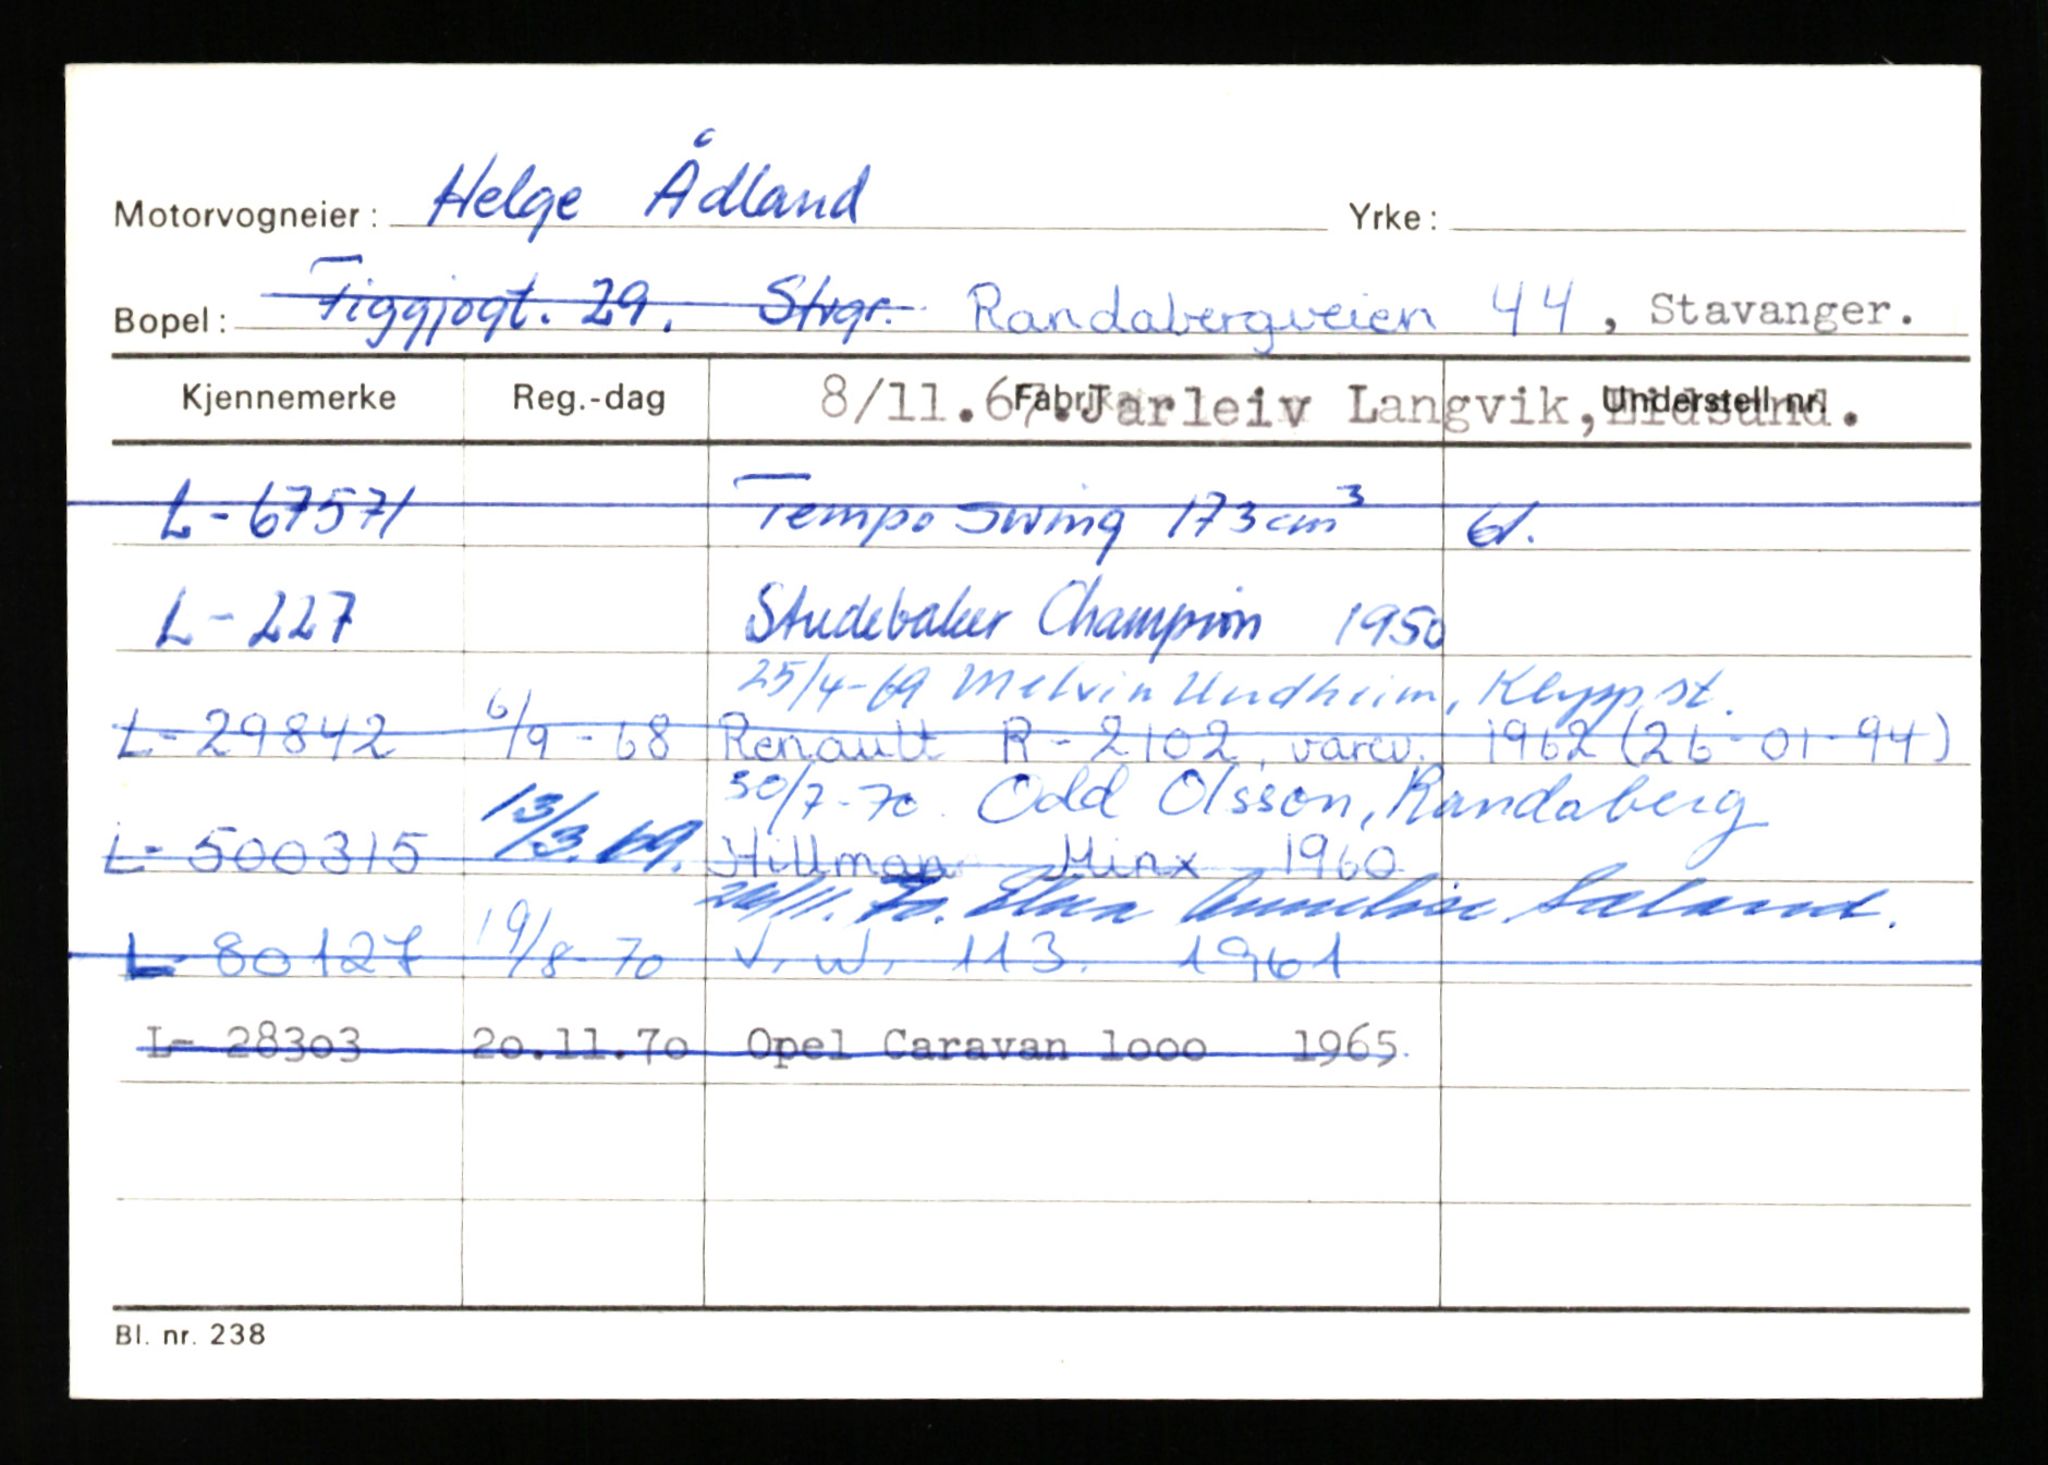 Motorvogneier: Helge Ådland Yrke:
Bopel: Figgjogt. 29. Stvgr. Randabergveien 44, Stavanger.
Kjennemerke Reg.-dag Fabrikat Understell nr.
8/11.67. Jarleiv Langvik,
L-67571 Tempo Swing 173cm³
L-227 Studebaker Champion 1950
25/4-69 Melvin Undheim, Klepp st.
L-29842 6/9-68 Renault R-2102, varev. 1962 (26-01-94)
30/7-70. Odd Olsson, Randaberg
L-500315 13/3.69. Hillman Minx 1960
Annelise Saland.
L-80127 19/8-70 V.W. 113. 1961
L-28303 20.11.70 Opel Caravan 1000 1965.
Bl. nr. 238